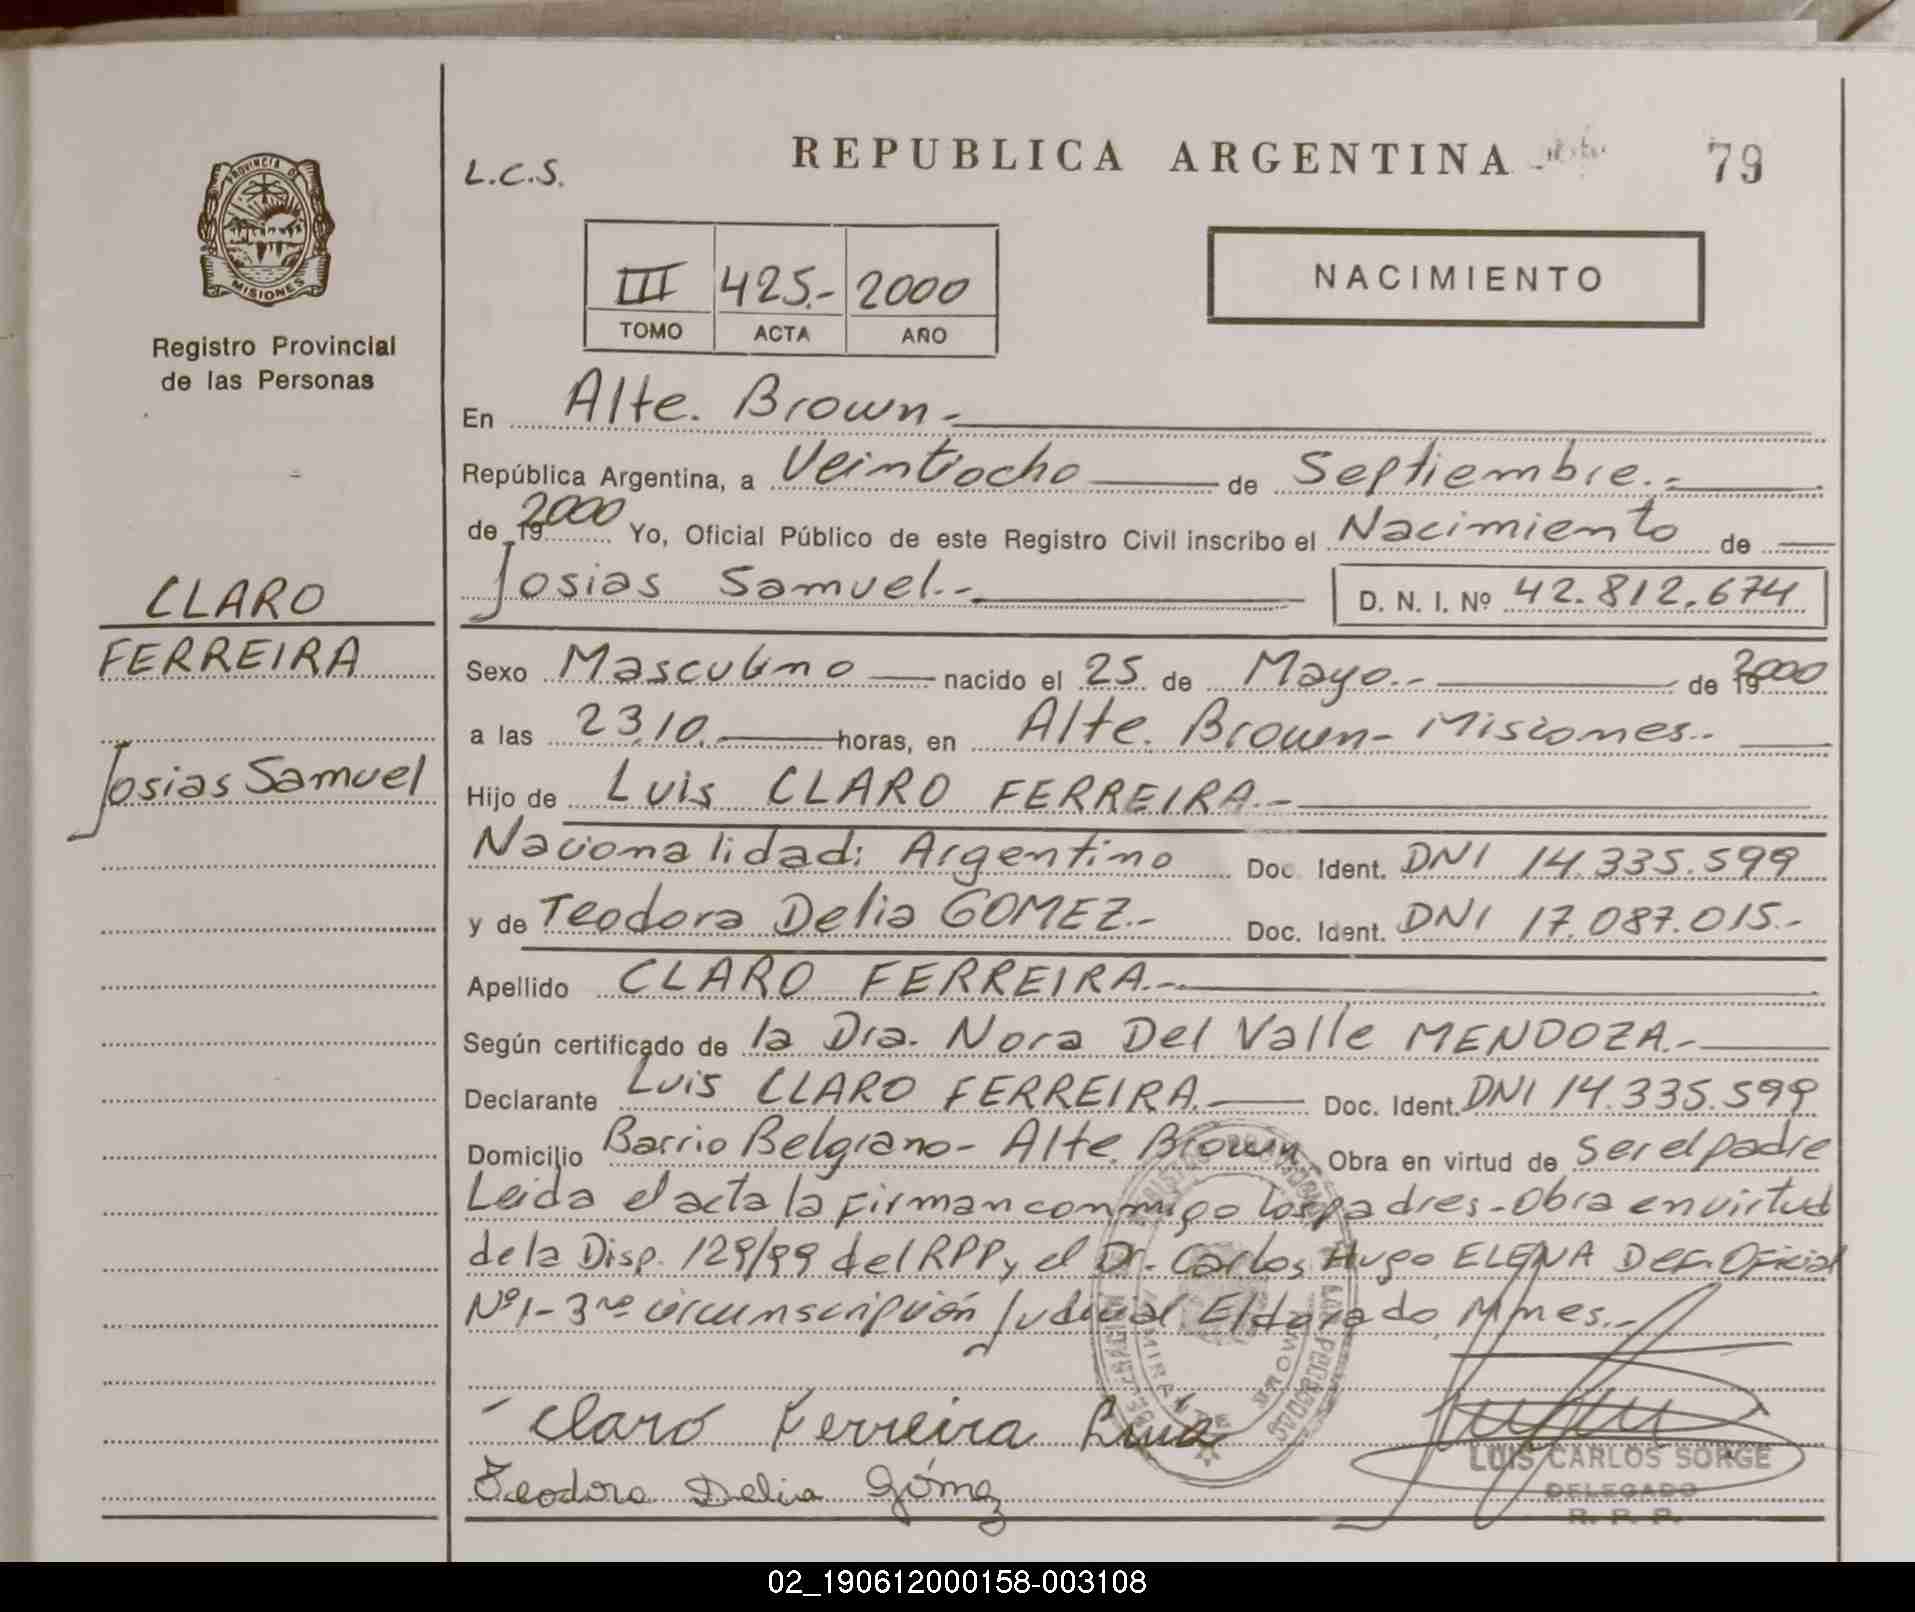 PROVINCIA DE
MISIONES
Registro Provincial
de las Personas
CLARO
FERREIRA
Josias Samuel
L.C.S.
REPUBLICA ARGENTINA
79
III 425.- 2000
TOMO ACTA AÑO
NACIMIENTO
En Alte. Brown.-
República Argentina, a Veintiocho de Septiembre.-
de 19 2000 Yo, Oficial Público de este Registro Civil inscribo el Nacimiento de
Josias Samuel.- D. N. I. Nº 42.812.674
Sexo Masculino nacido el 25 de Mayo.- de 19 2000
a las 23,10. horas, en Alte. Brown - Misiones.-
Hijo de Luis CLARO FERREIRA.-
Nacionalidad: Argentino Doc. Ident. DNI 14.335.599
y de Teodora Delia GOMEZ.- Doc. Ident. DNI 17.087.015.-
Apellido CLARO FERREIRA.-
Según certificado de la Dra. Nora Del Valle MENDOZA.-
Declarante Luis CLARO FERREIRA. Doc. Ident. DNI 14.335.599
Domicilio Barrio Belgrano - Alte. Brown. Obra en virtud de ser el padre
Leida el acta la firman conmigo los padres - Obra en virtud
de la Disp. 129/99 del RPP y el Dr. Carlos Hugo ELENA Def. Oficial
Nº 1 - 3ra circunscripción Judicial Eldorado, Mnes.-
Claro Ferreira Luis
Teodora Delia Gómez
LUIS CARLOS SORGE
DELEGADO
R. P. P.
02_190612000158-003108